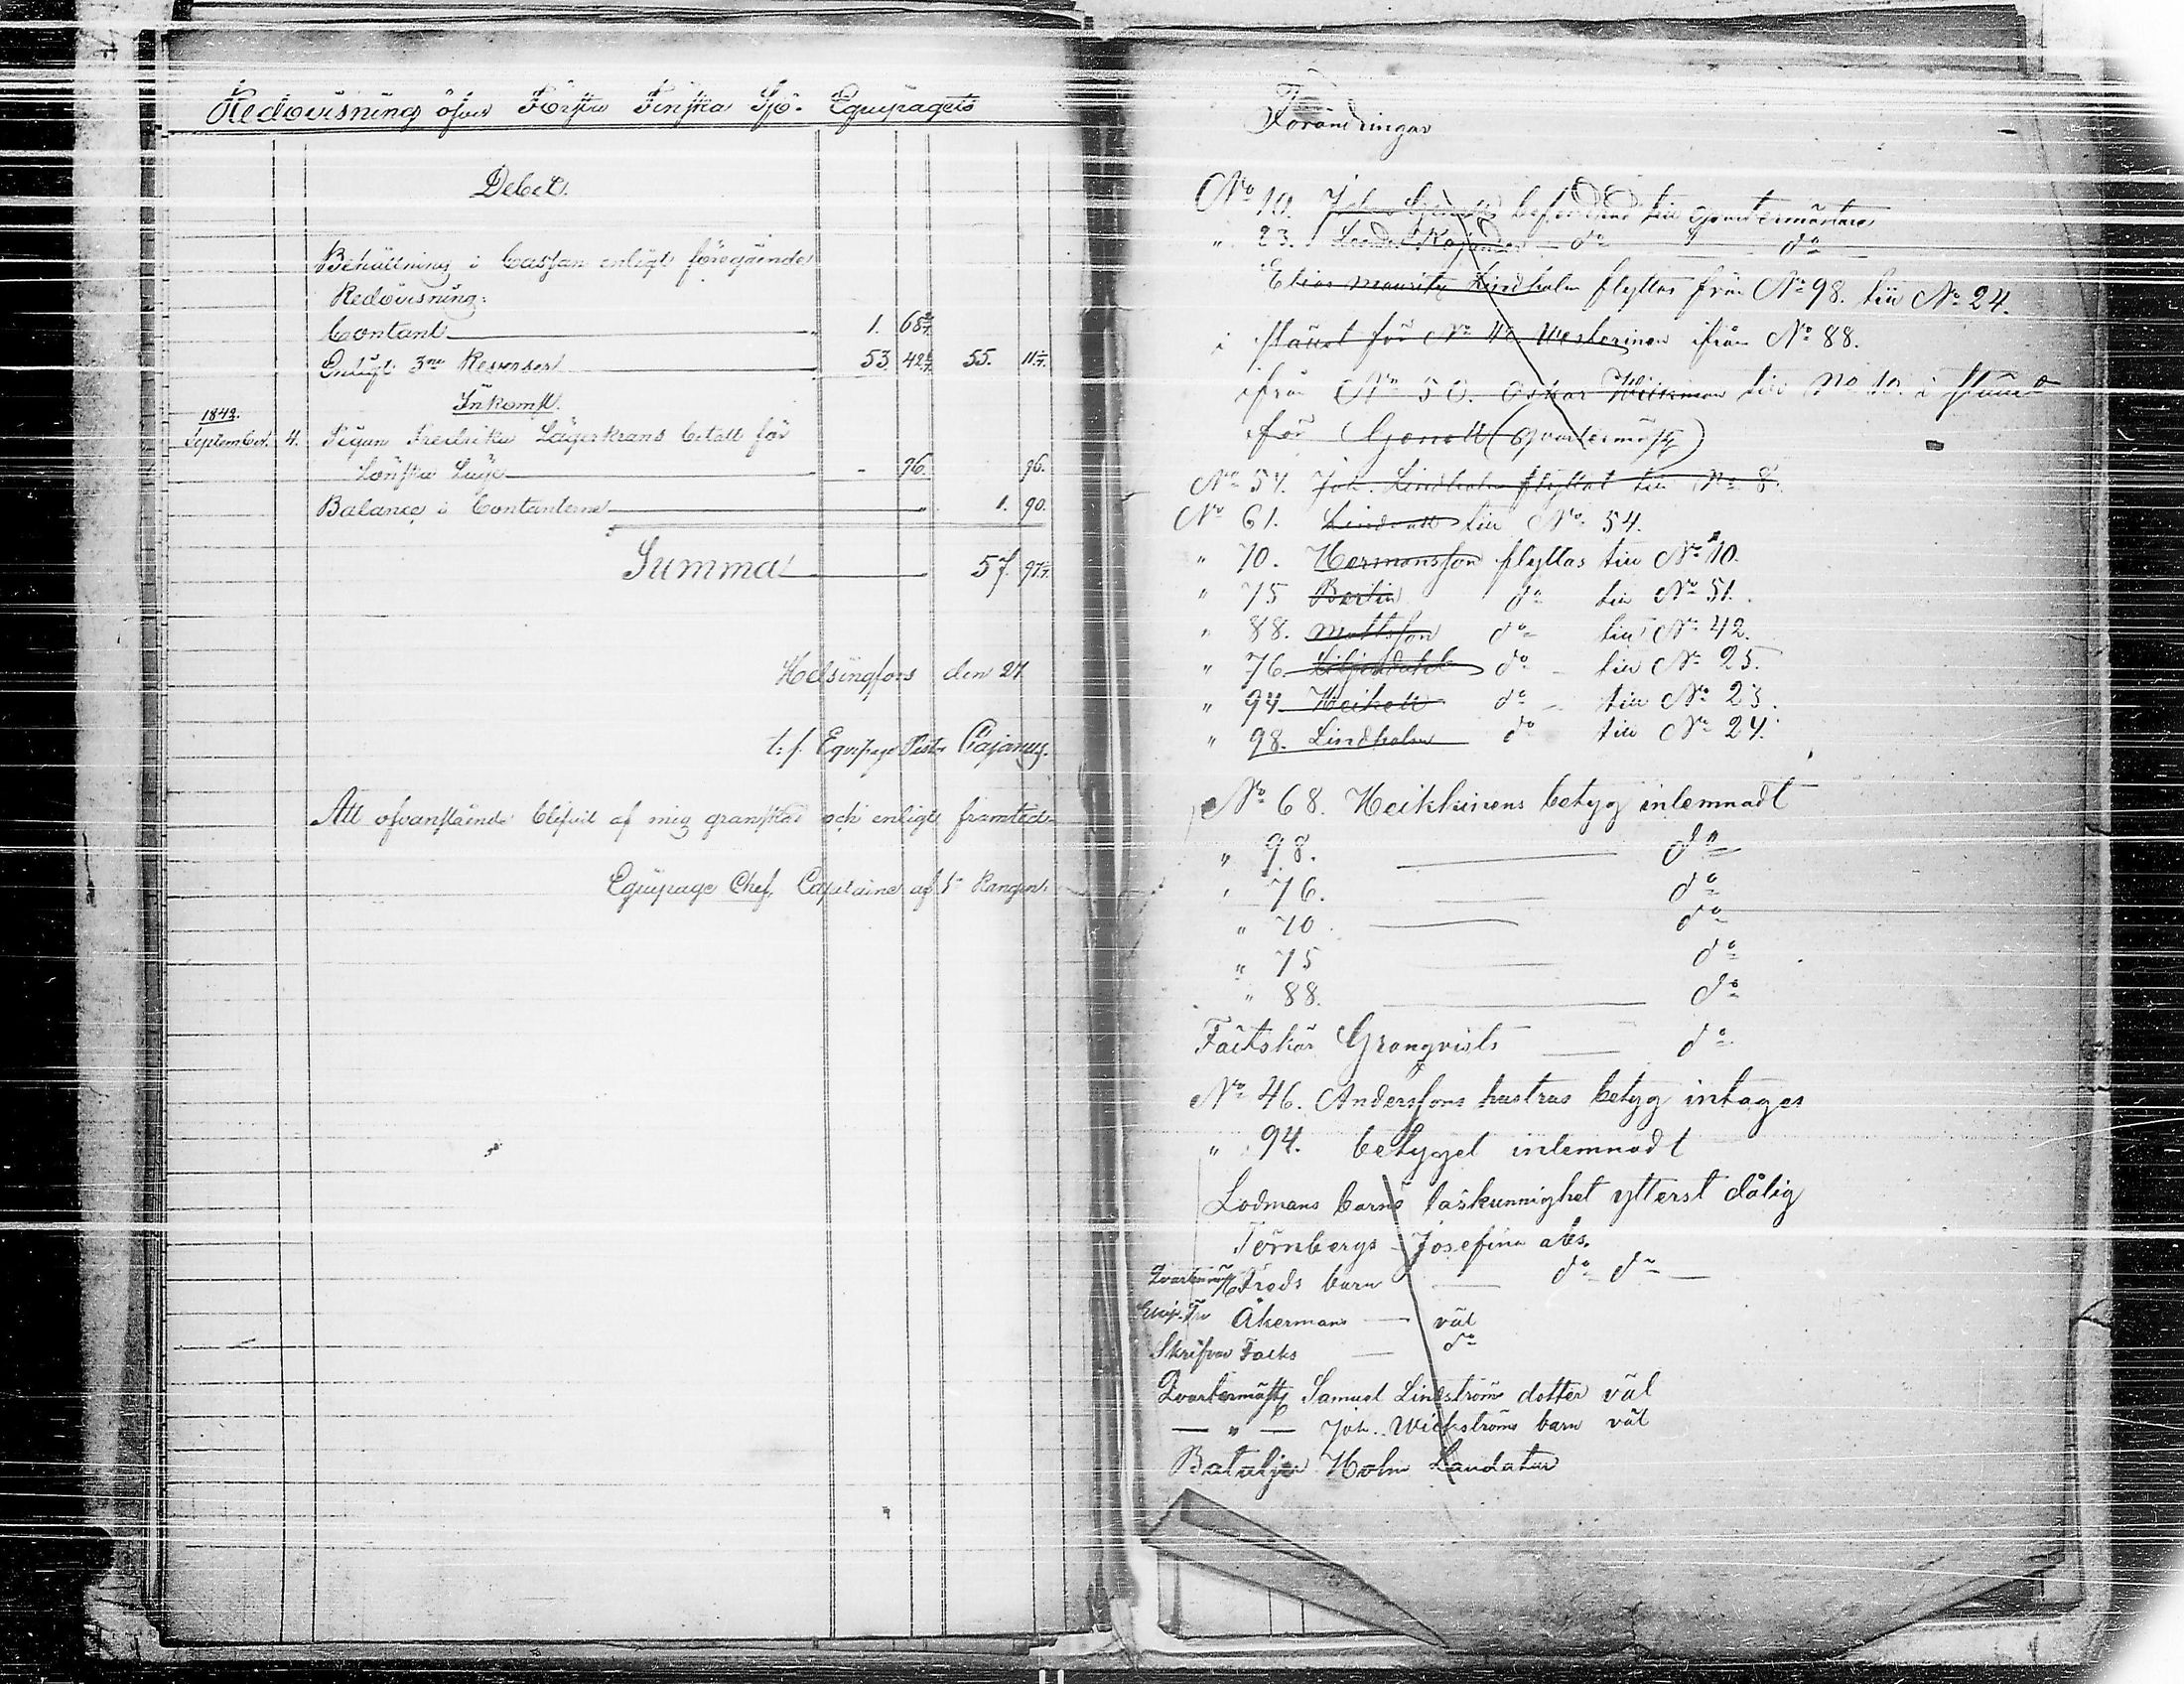 Redovisning öfver Första Finska Sjö- Equipagets
Debet.
Behållning i Cassan enligt föregående
Redovisning:
Contant 1. 68 4/7
Enligt 3ne Reverser 53 42 6/7 55. 11 3/7.
Inkomst.
1842.
September. 4. Pigan Fredrika Lagerkrans betalt för
Lönska Läge - 96. 96.
Balance i Contanterne 1. 90.
Summa 57. 97 3/7.
Helsingfors den 27
t. f. Equipage Pastor Cajanus.
Att ofvanstående blifvit af mig granskad och enligt framted-
Equipage Chef, Capitaine af 1a Rangen.
Förändringar
No 10. befordrad till Quartermästare
" 23. do do
Elias Mauritz Lindholm flyttas från No 98. till No 24.
i stället för No Westerinen ifrån No 88.
ifrån No 50. Oskar Wickman till No 10. i stället
för (Quartermäst)
No 54. Joh. Lindholm flyttat till No 8.
No 61. till No 54.
" 70. Hermansson flyttas till No 10.
" 75 Bertin do till No 51.
" 88. Mattsson do till No 42.
" 76 Liljendahl do till No 25.
" 94 Heikell do till No 23.
" 98. Lindholm do till No 24.
No 68. Heikkinens betyg inlemnadt
" 98. do
" 76. do
" 70. do
" 75 do
" 88. do
Fältskär Granqvists do
No 46. Anderssons hustrus betyg intages
" 94. betyget inlemnadt
Lodmans barns läskunnighet ytterst dålig
Törnbergs Josefina abs.
Quartermäst Frods barn do do
Åkermans väl
Skrifvar Facks do
Quartermäst Samuel Lindströms dotter väl
— " — Joh. Wickströms barn väl
Holm Laudatur